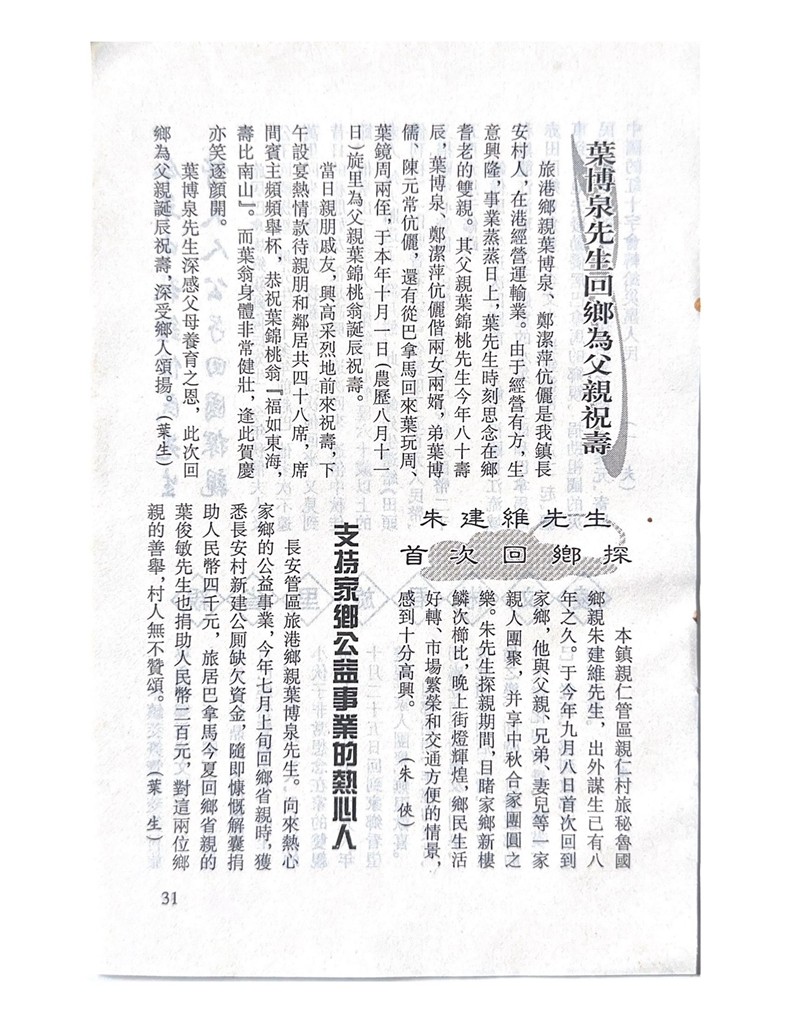 葉博泉先生回鄉為父親祝壽
旅港鄉親葉博泉、鄭潔萍伉儷是我鎮長
安村人，在港經營運輸業。由于經營有方，生
意興隆，事業蒸蒸日上，葉先生時刻思念在鄉
耆老的雙親。其父親葉錦桃先生今年八十壽
辰，葉博泉、鄭潔萍伉儷偕兩女兩婿，弟葉博
儒、陳元常伉儷，還有從巴拿馬回來葉玩周、
葉鏡周兩侄，于本年十月一日(農歷八月十一
日)旋里為父親葉錦桃翁誕辰祝壽。
當日親朋戚友，興高采烈地前來祝壽，下
午設宴熱情款待親朋和鄰居共四十八席，席
間賓主頻頻舉杯，恭祝葉錦桃翁『福如東海，
壽比南山』。而葉翁身體非常健壯，逢此賀慶
亦笑逐顏開。
葉博泉先生深感父母養育之恩，此次回
鄉為父親誕辰祝壽，深受鄉人頌揚。(葉生)
朱建維先生
首次回鄉探
本鎮親仁管區親仁村旅秘魯國
鄉親朱建維先生，出外謀生已有八
年之久。于今年九月八日首次回到
家鄉，他與父親、兄弟、妻兒等一家
親人團聚，并享中秋合家團圓之
樂。朱先生探親期間，目睹家鄉新樓
鱗次櫛比，晚上街燈輝煌，鄉民生活
好轉、市場繁榮和交通方便的情景，
感到十分高興。(朱俠)
支持家鄉公益事業的熱心人
長安管區旅港鄉親葉博泉先生。向來熱心
家鄉的公益事業，今年七月上旬回鄉省親時，獲
悉長安村新建公厠缺欠資金，隨即慷慨解囊捐
助人民幣四千元，旅居巴拿馬今夏回鄉省親的
葉俊敏先生也捐助人民幣二百元，對這兩位鄉
親的善舉，村人無不贊頌。(葉生)
31